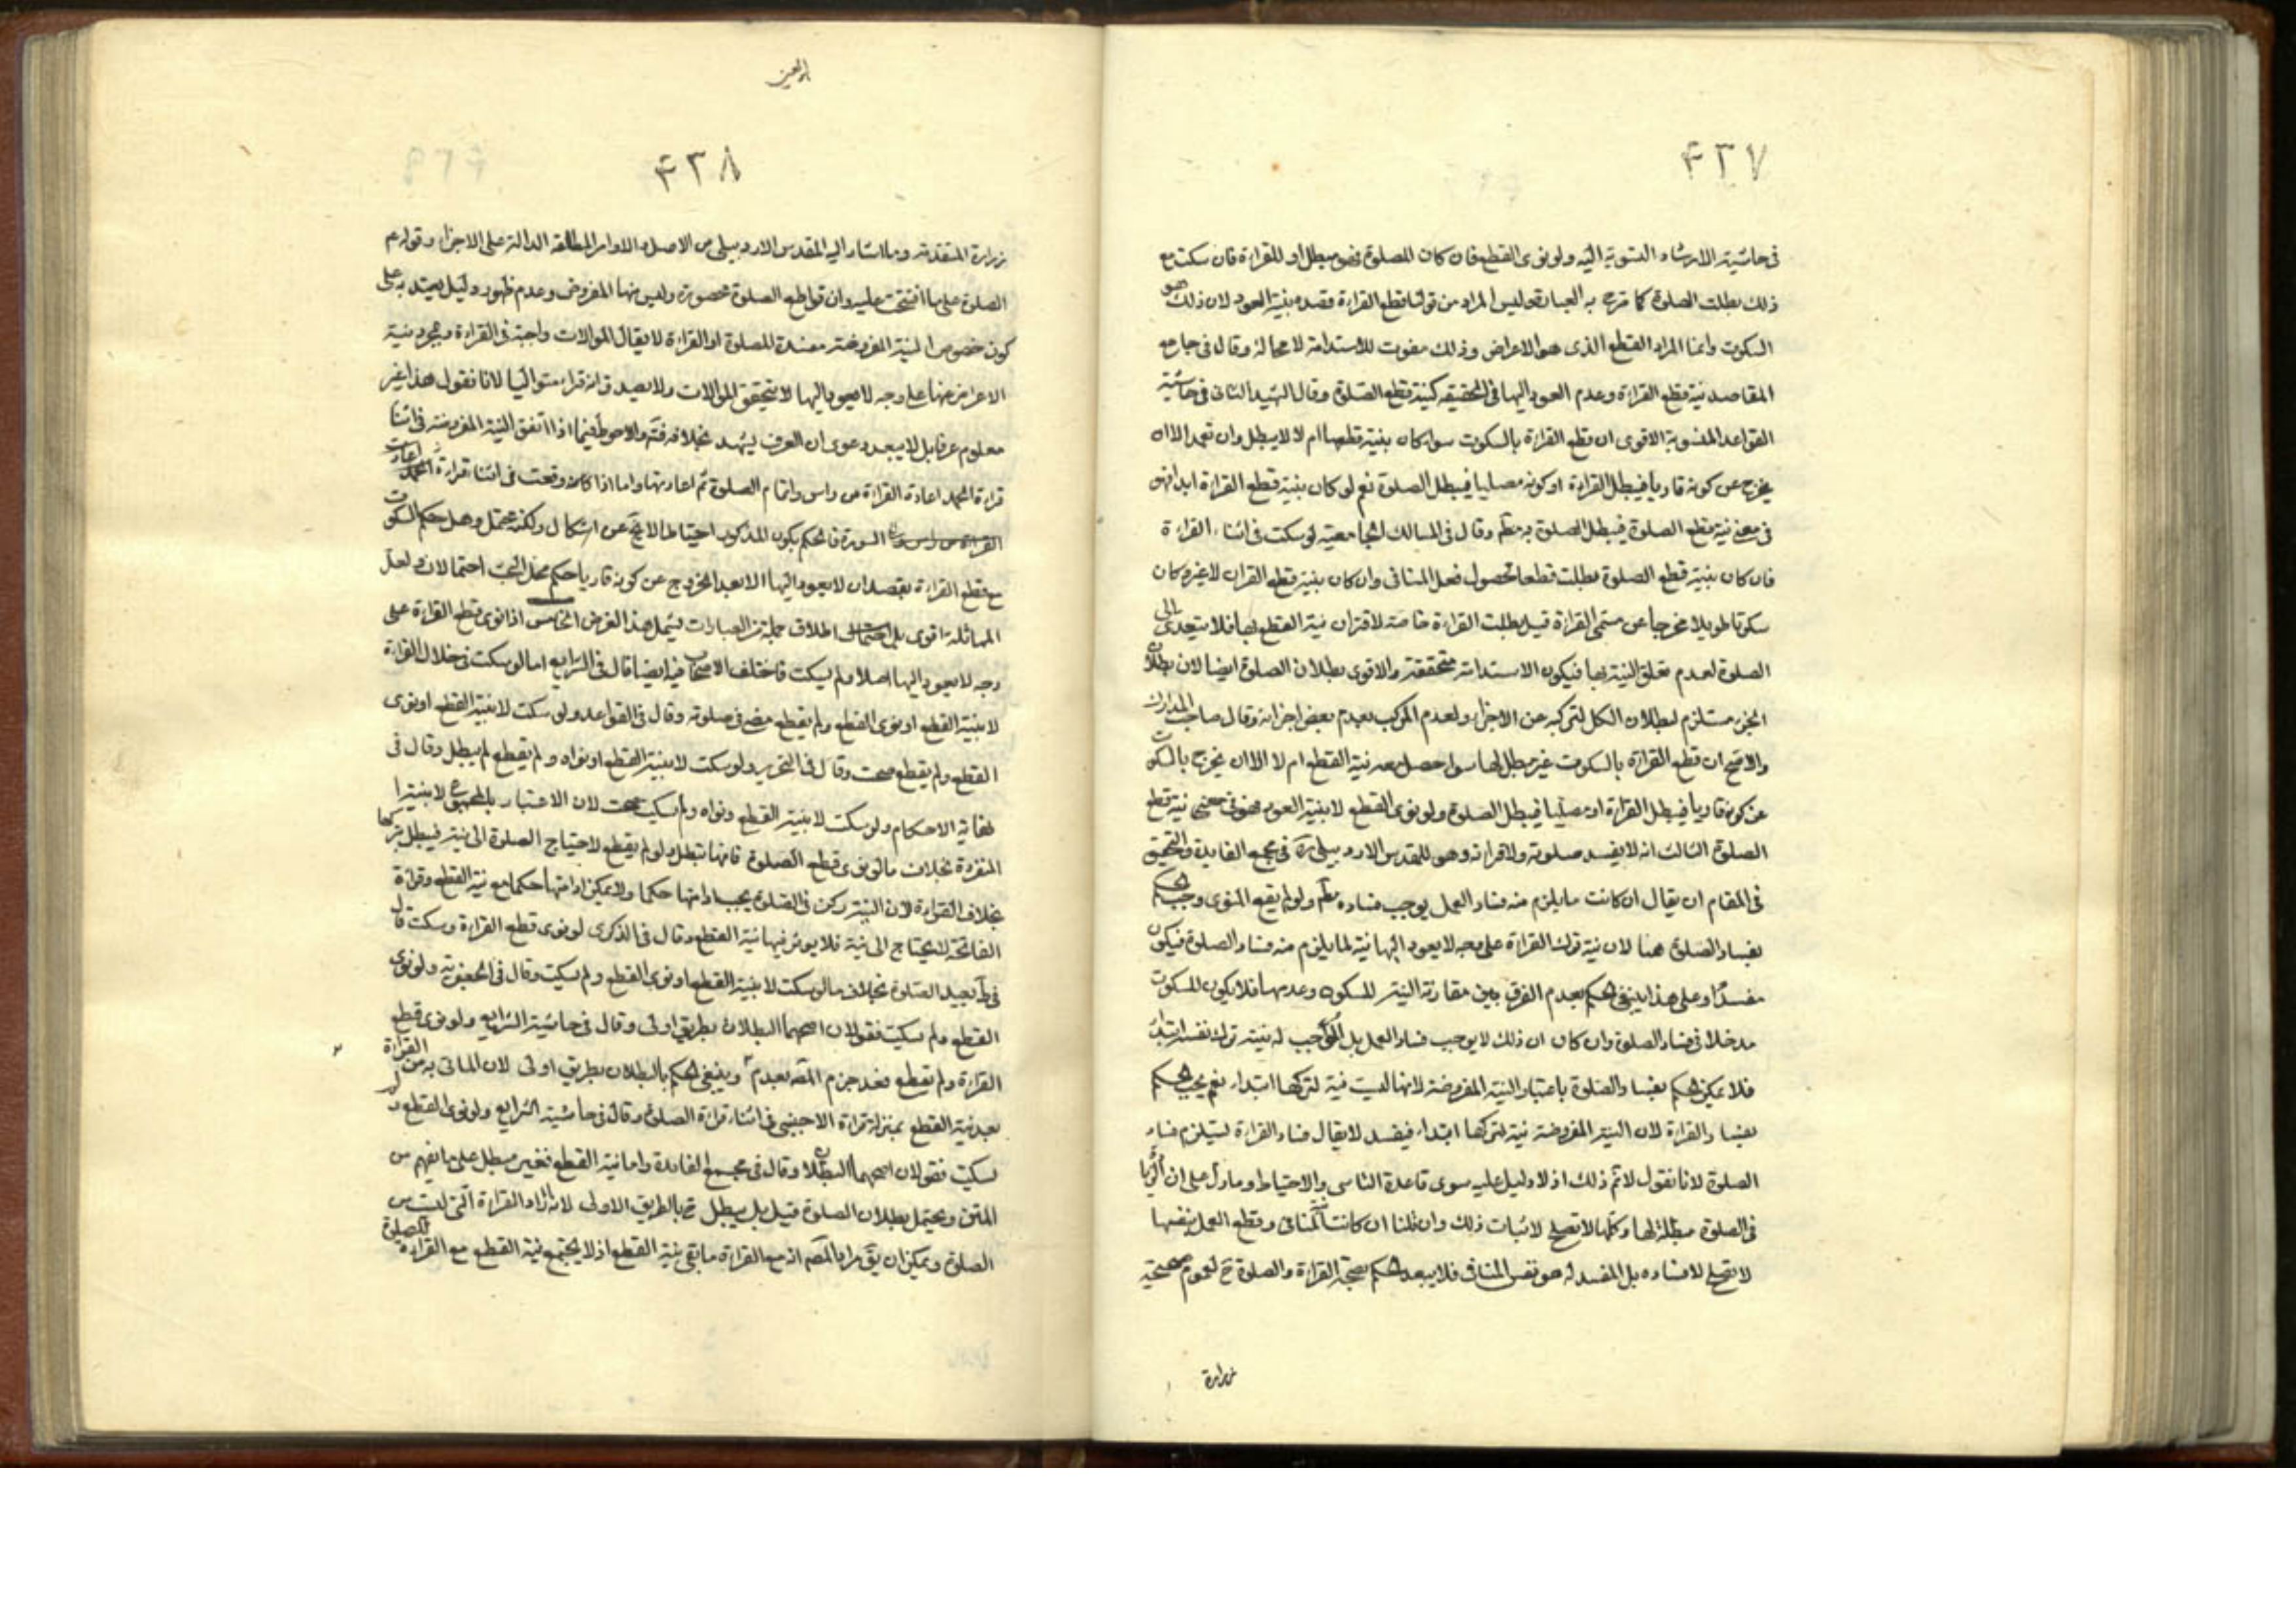 ۴۲۷
في حاشية الارشاد المنسوبة اليه ولو نوى القطع فان كان للصلوة فهو مبطل او للقراءة فان سكت مع
ذلك بطلت الصلوة كما صرح به العبارة وليس المراد من قولنا قطع القراءة قصده بنية العود لان ذلك هو
السكوت وانما المراد القطع الذي هو الاعراض وذلك مفوت للاستدامة لا محالة وقال في جامع
المقاصد نية قطع القراءة وعدم العود اليها في الحقيقة كنية قطع الصلوة وقال الشهيد الثاني في حاشية
القواعد المنسوبة الاقوى ان قطع القراءة بالسكوت سواء كان بنية قطعها ام لا لا يبطل وان تعمد الا ان
يخرج عن كونه قاريا فيبطل القراءة او كونه مصليا فيبطل الصلوة نعم لو كان بنية قطع القراءة ابدا فهو
في معنى نية قطع الصلوة فيبطل الصلوة به مطم وقال في المسالك الجامعية لو سكت في اثناء القراءة
فان كان بنية قطع الصلوة بطلت قطعا لحصول فعل المنافي وان كان بنية قطع القران لا غيره كان
سكوتا طويلا مخرجا عن مسمى القراءة قيل بطلت القراءة خاصة لاقتران نية القطع بها فلا يتعدى الى
الصلوة لعدم تعلق النية بها فيكون الاستدامة متحققة والاقوى بطلان الصلوة ايضا لان بطلان
الجزء مستلزم لبطلان الكل لتركبه من الاجزاء ولعدم المركب بعدم بعض اجزائه وقال صاحب المدارك
والاصح ان قطع القراءة بالسكوت غير مبطل لها سواء حصل معه نية القطع ام لا الا ان يخرج بالسكوت
عن كونه قاريا فيبطل القراءة او مصليا فيبطل الصلوة ولو نوى القطع لا بنية العود فهو في معنى نية قطع
الصلوة الثالث انه لا يفسد صلوته ولا قراءته وهو للمقدس الاردبيلي ره في مجمع الفايدة والتحقيق
في المقام ان يقال ان كانت ما يلزم منه فساد العمل يوجب فساده مطم ولو لم يقع المنوى وجب الحكم
بفساد الصلوة هنا لان نية ترك القراءة على وجه لا يعود اليها نية لما يلزم منه فساد الصلوة فيكون
مفسدا وعلى هذا ينبغي الحكم بعدم الفرق بين مقارنة النية للسكوت وعدمها فلا يكون للسكوت
مدخلا في فساد الصلوة وان كان ان ذلك لا يوجب فساد العمل بل الموجب له نية ترك نفسه ابتداء
فلا يمكن الحكم بفساد الصلوة باعتبار النية المفروضة لانها ليست نية لتركها ابتداء نعم يجب الحكم
بفساد القراءة لان النية المفروضة نية لتركها ابتداء فيفسد لا يقال فساد القراءة يستلزم فساد
الصلوة لانا نقول لا ثم ذلك اذ لا دليل عليه سوى قاعدة التاسي والاحتياط وما دل على ان
في الصلوة مبطلة لها وكلها لا تصلح لاثبات ذلك وان قلنا ان كانت نية المنافي وقطع العمل بنفسها
لا تصلح لافساده بل المفسد له هو نفس المنافي فلا يبعد الحكم بصحة القراءة والصلوة ح لعموم صحيحة
زرارة
۴۲۸
زرارة المتقدمة وما اشار اليه المقدس الاردبيلي من الاصل والاوامر المطلقة الدالة على الاجزاء وقولهم
الصلوة على ما افتتحت عليه وان قواطع الصلوة محصورة وليس منها المفروض وعدم ظهور دليل يعتد به على
كون خصوص النية المفروضة مفسدة للصلوة او القراءة لا يقال الموالات واجبة في القراءة وبمجرد نية
الاعراض عنها على وجه لا يعود اليها لا يتحقق الموالات ولا يصدق انه قراء متواليا لانا نقول هذا غير
معلوم عرفا بل لا يبعد دعوى ان العرف يشهد بخلافه فتم والاحوط فيما اذا اتفق النية المفروضة في اثناء
قراءة الحمد اعادة القراءة من راس واتمام الصلوة ثم اعادتها واما اذا كان وقعت في اثناء قراءة
السورة فالحكم بكون المذكور احتياطا لا يخ عن اشكال ولكنه محتمل وهل حكم السكوت
مع قطع القراءة بقصد ان لا يعود اليها الا بعد الخروج عن كونه قاريا حكم محل البحث احتمالان ولعل
المماثلة اقوى بل اطلاق جملة من العبارات يشمل هذا الفرض الخامس اذا نوى قطع القراءة على
وجه لا يعود اليها اصلا ولم يسكت فاختلف الاصحاب فيه ايضا قال في الشرايع اما لو سكت في خلال القراءة
لا بنية القطع او نوى القطع ولم يقطع مضى في صلوته وقال في القواعد ولو سكت لا بنية القطع او نوى
القطع ولم يقطع صحت وقال في التحرير ولو سكت لا بنية القطع او نواه ولم يقطع لم يبطل وقال في
نهاية الاحكام ولو سكت لا بنية القطع ونواه ولم يسكت صحت لان الاعتبار بالمجموع لا بنية
المنفردة بخلاف ما لو نوى قطع الصلوة فانها تبطل ولو لم يقطع لاحتياج الصلوة الى نية فيبطل بتركها
بخلاف القراءة لان النية ركن في الصلوة يجب ادامتها حكما ولا يمكن ادامتها حكما مع نية القطع وقراءة
الفاتحة لا يحتاج الى نية فلا يوثر فيها نية القطع وقال في الذكرى لو نوى قطع القراءة وسكت قال
في ط يعيد الصلوة بخلاف ما لو سكت لا بنية القطع او نوى القطع ولم يسكت وقال في الجعفرية ولو نوى
القطع ولم يسكت فقولان اصحهما البطلان بطريق اولى وقال في حاشية الشرايع ولو نوى قطع
القراءة ولم يقطع فعند جزم المصه بعدم وينبغي الحكم بالبطلان بطريق اولى لان الماتى به من القراءة
بعد نية القطع بمنزلة قراءة الاجنبي في اثناء قراءة الصلوة وقال في حاشية الشرايع ولو نوى القطع ولم
يسكت فقولان اصحهما البطلان وقال في مجمع الفايدة واما نية القطع فغير مبطل على ما يفهم من
المتن ويحتمل بطلان الصلوة قيل بل يبطل ح بالطريق الاولى لانه زاد القراءة التي ليست من
الصلوة ويمكن ان يق مراد المصه انه مع القراءة ما بقي نية القطع اذ لا يجتمع نية القطع مع القراءة للصلوة